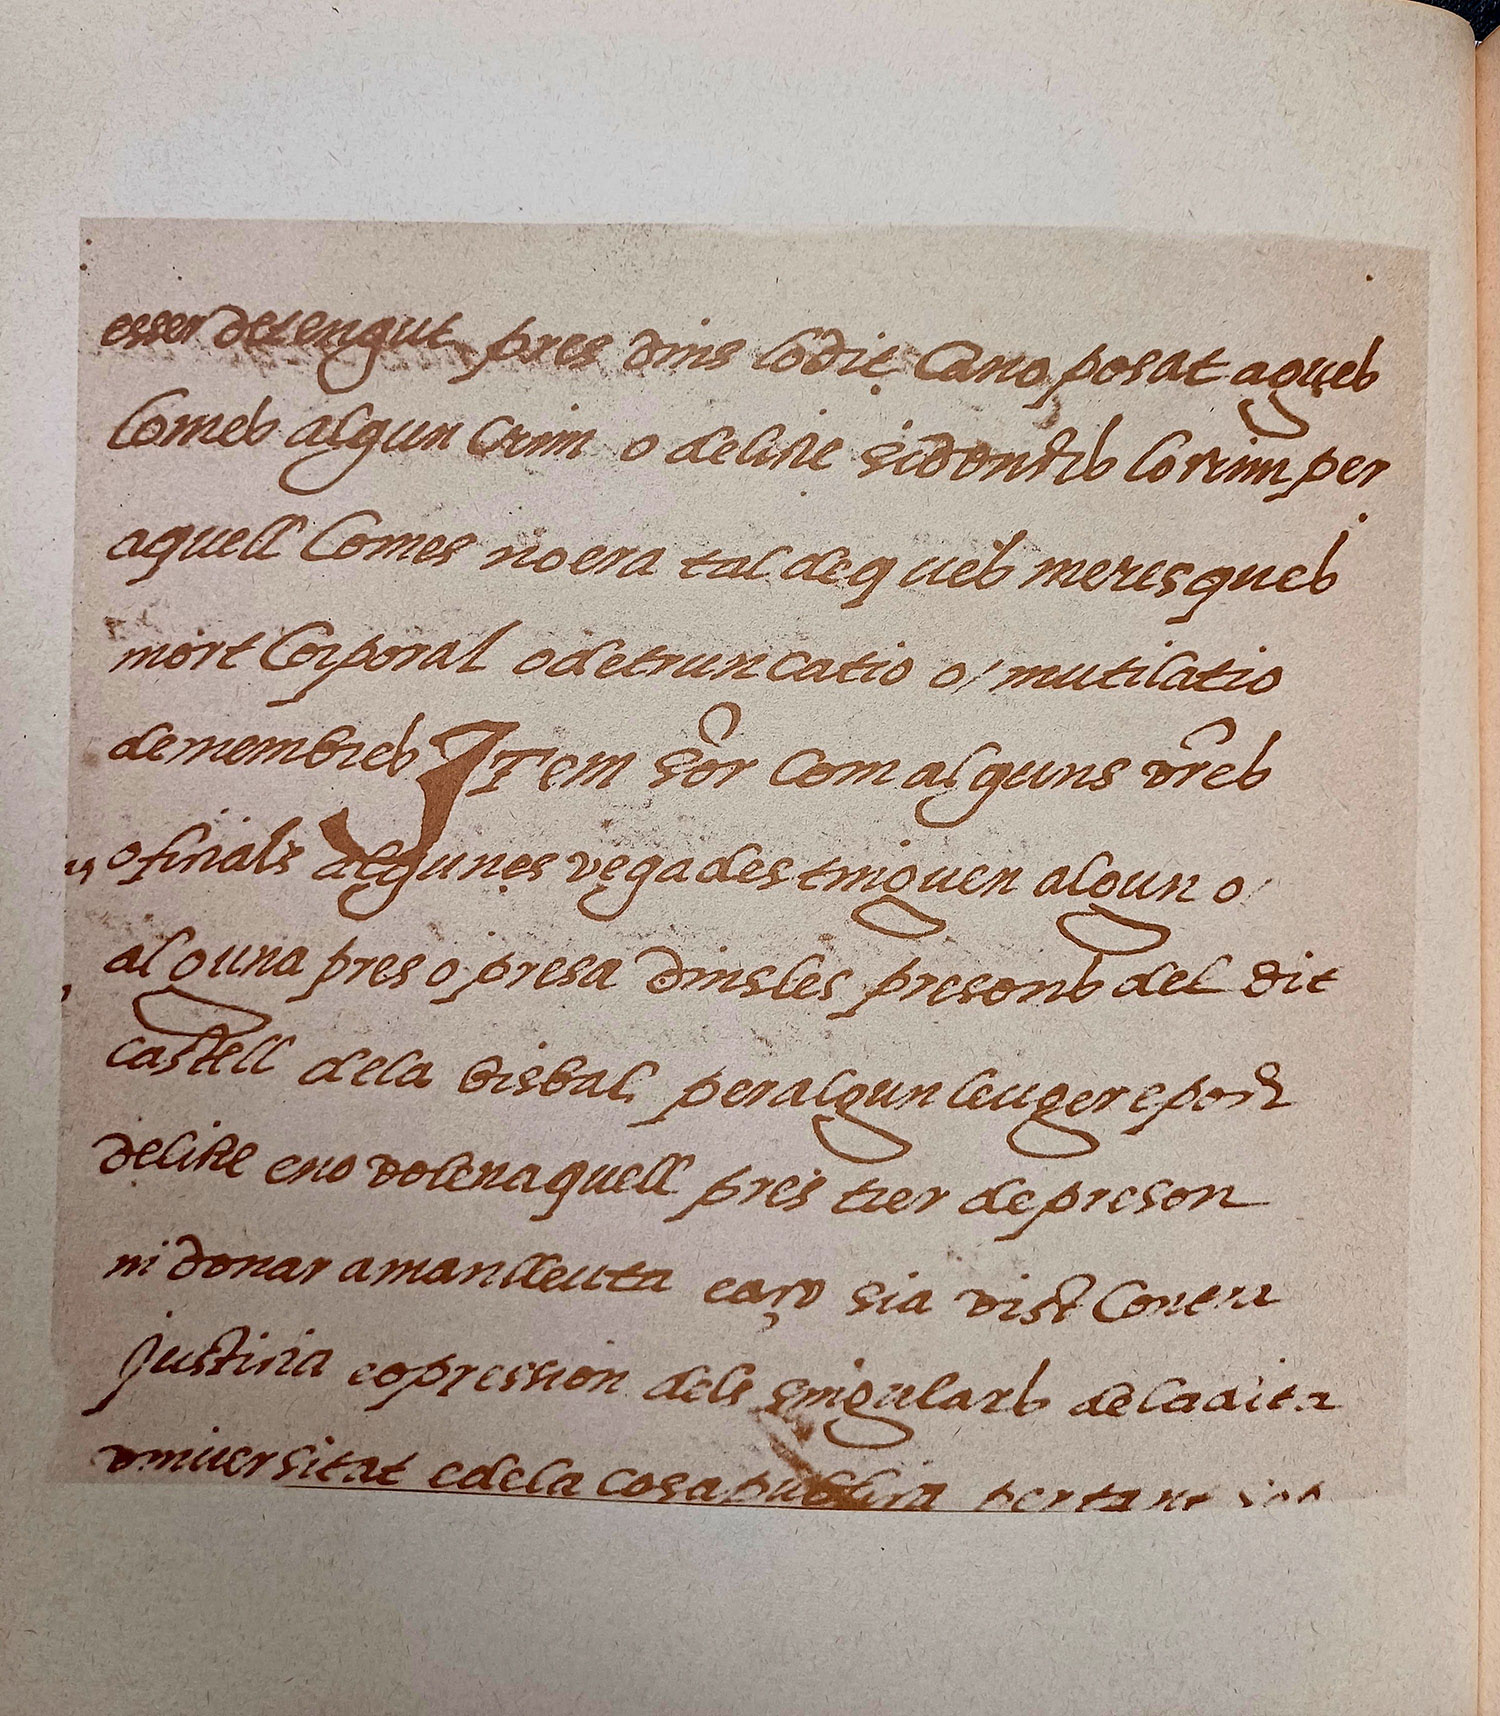 esser detengut pres dins lo dit Cano posat aques
Comes algun Crim o delicte si donchs lo crim per
aquell Comes no era tal de que s meresques
mort Corporal o detruncatio o/ mutilatio
de membres Item Sor Com alguns vres
oficials algunes vegades tinguen algun o/
alguna pres o presa dins les presons del dit
castell de la bisbal per algun leuger e poch
delicte e no volen aquell pres trer de preson
ni donar a manlleuta e aço sia vist Contra
justicia e opression dels singulars de la dita
vniuersitat e de la cosa publica per tant